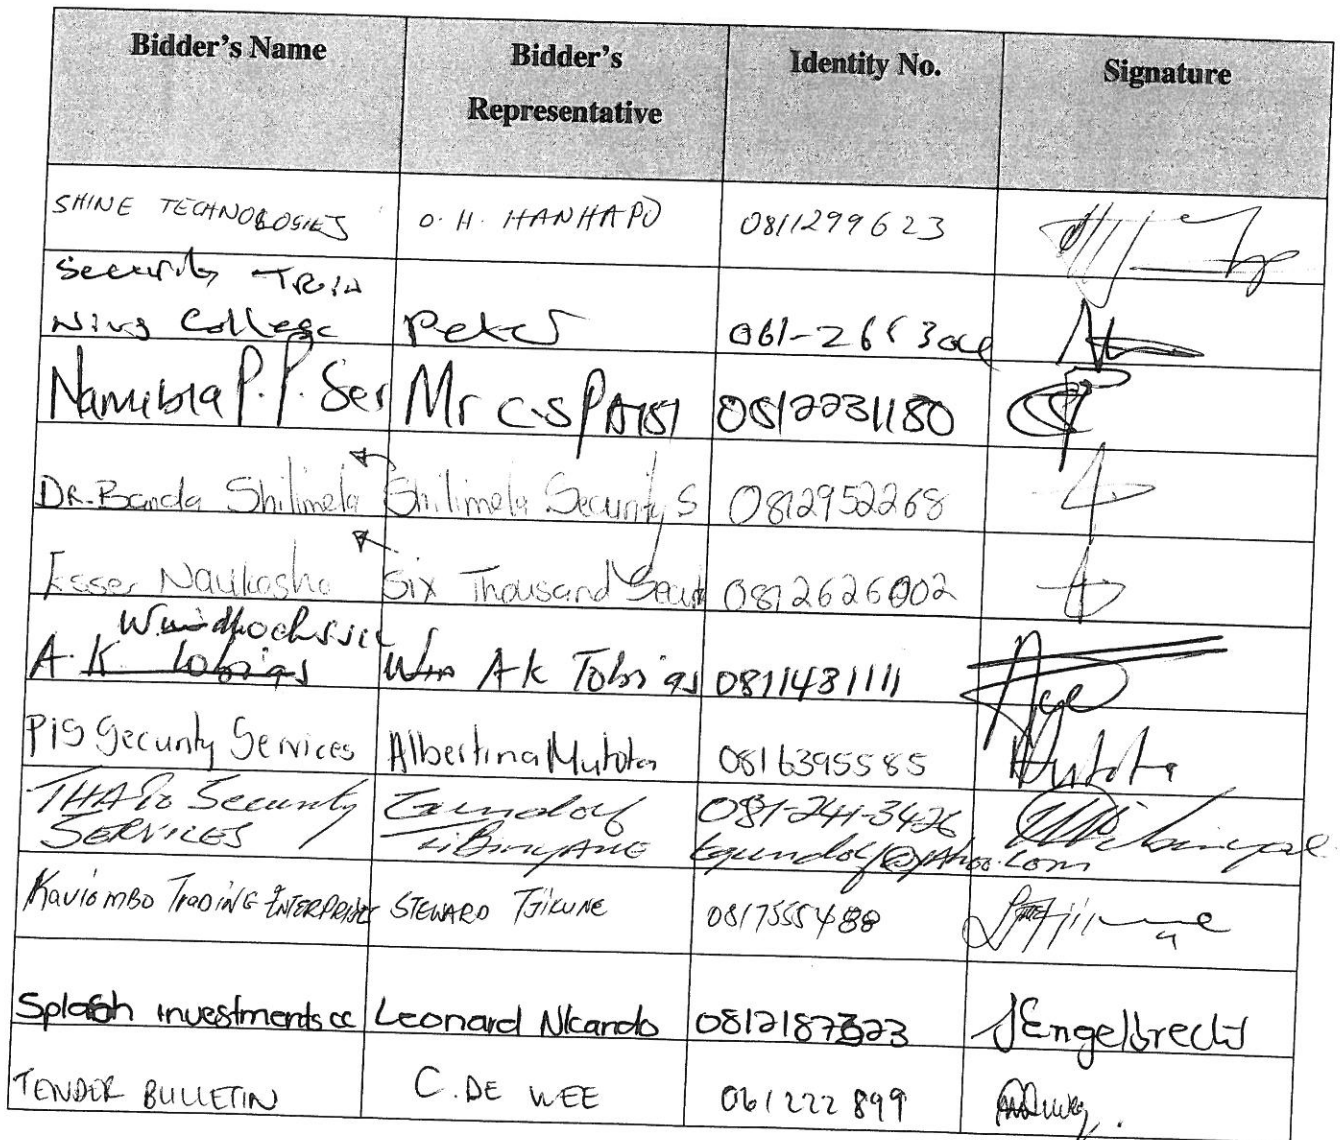 Bidder's Name
Bidder's
Representative
Identity No.
Signature
SHINE TECHNOLOGIES
O. H. HANHAPO
0811299623
Security Train
Ning College
Peter
061-26
Namibia P.P. Ser
Mr C.S
0812231180
Dr. Banda Shilimela
Shilimela Security S
0812952268
Esser Naukosho
Six Thousand Secur
0812626002
Windhoek
A.K. Tobias
A K Tobias
0811431111
PIS Security Services
Albertina Mutota
0816395585
Mutota
THABO Security
SERVICES
Gundolf
TIBINYANE
081-241-3426
tgundolf@yahoo.com
KAVIOMBO TRADING ENTERPRISES
STEWARD TJIKUNE
0817555488
Splash investments cc
Leonard Nkando
0812187323
J Engelbrecht
TENDER BULLETIN
C. DE WEE
061 222 899